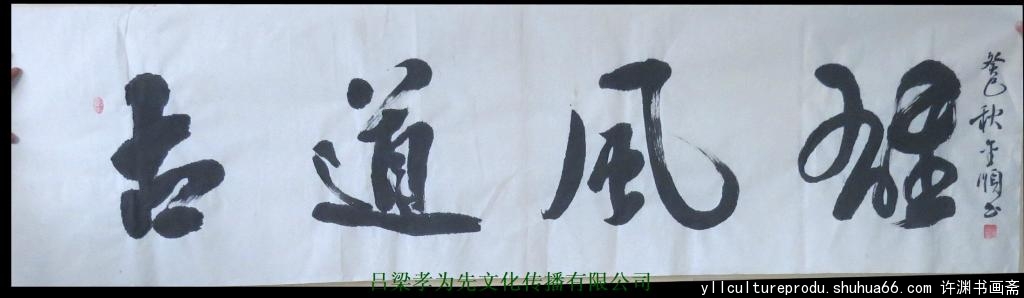 古道風雄
癸巳秋金順书
吕梁孝为先文化传播有限公司
yllcultureprodu.shuhua66.com 许渊书画斋